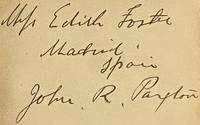 Miss Edith Foster
Madrid
Spain
John. R. Paxton